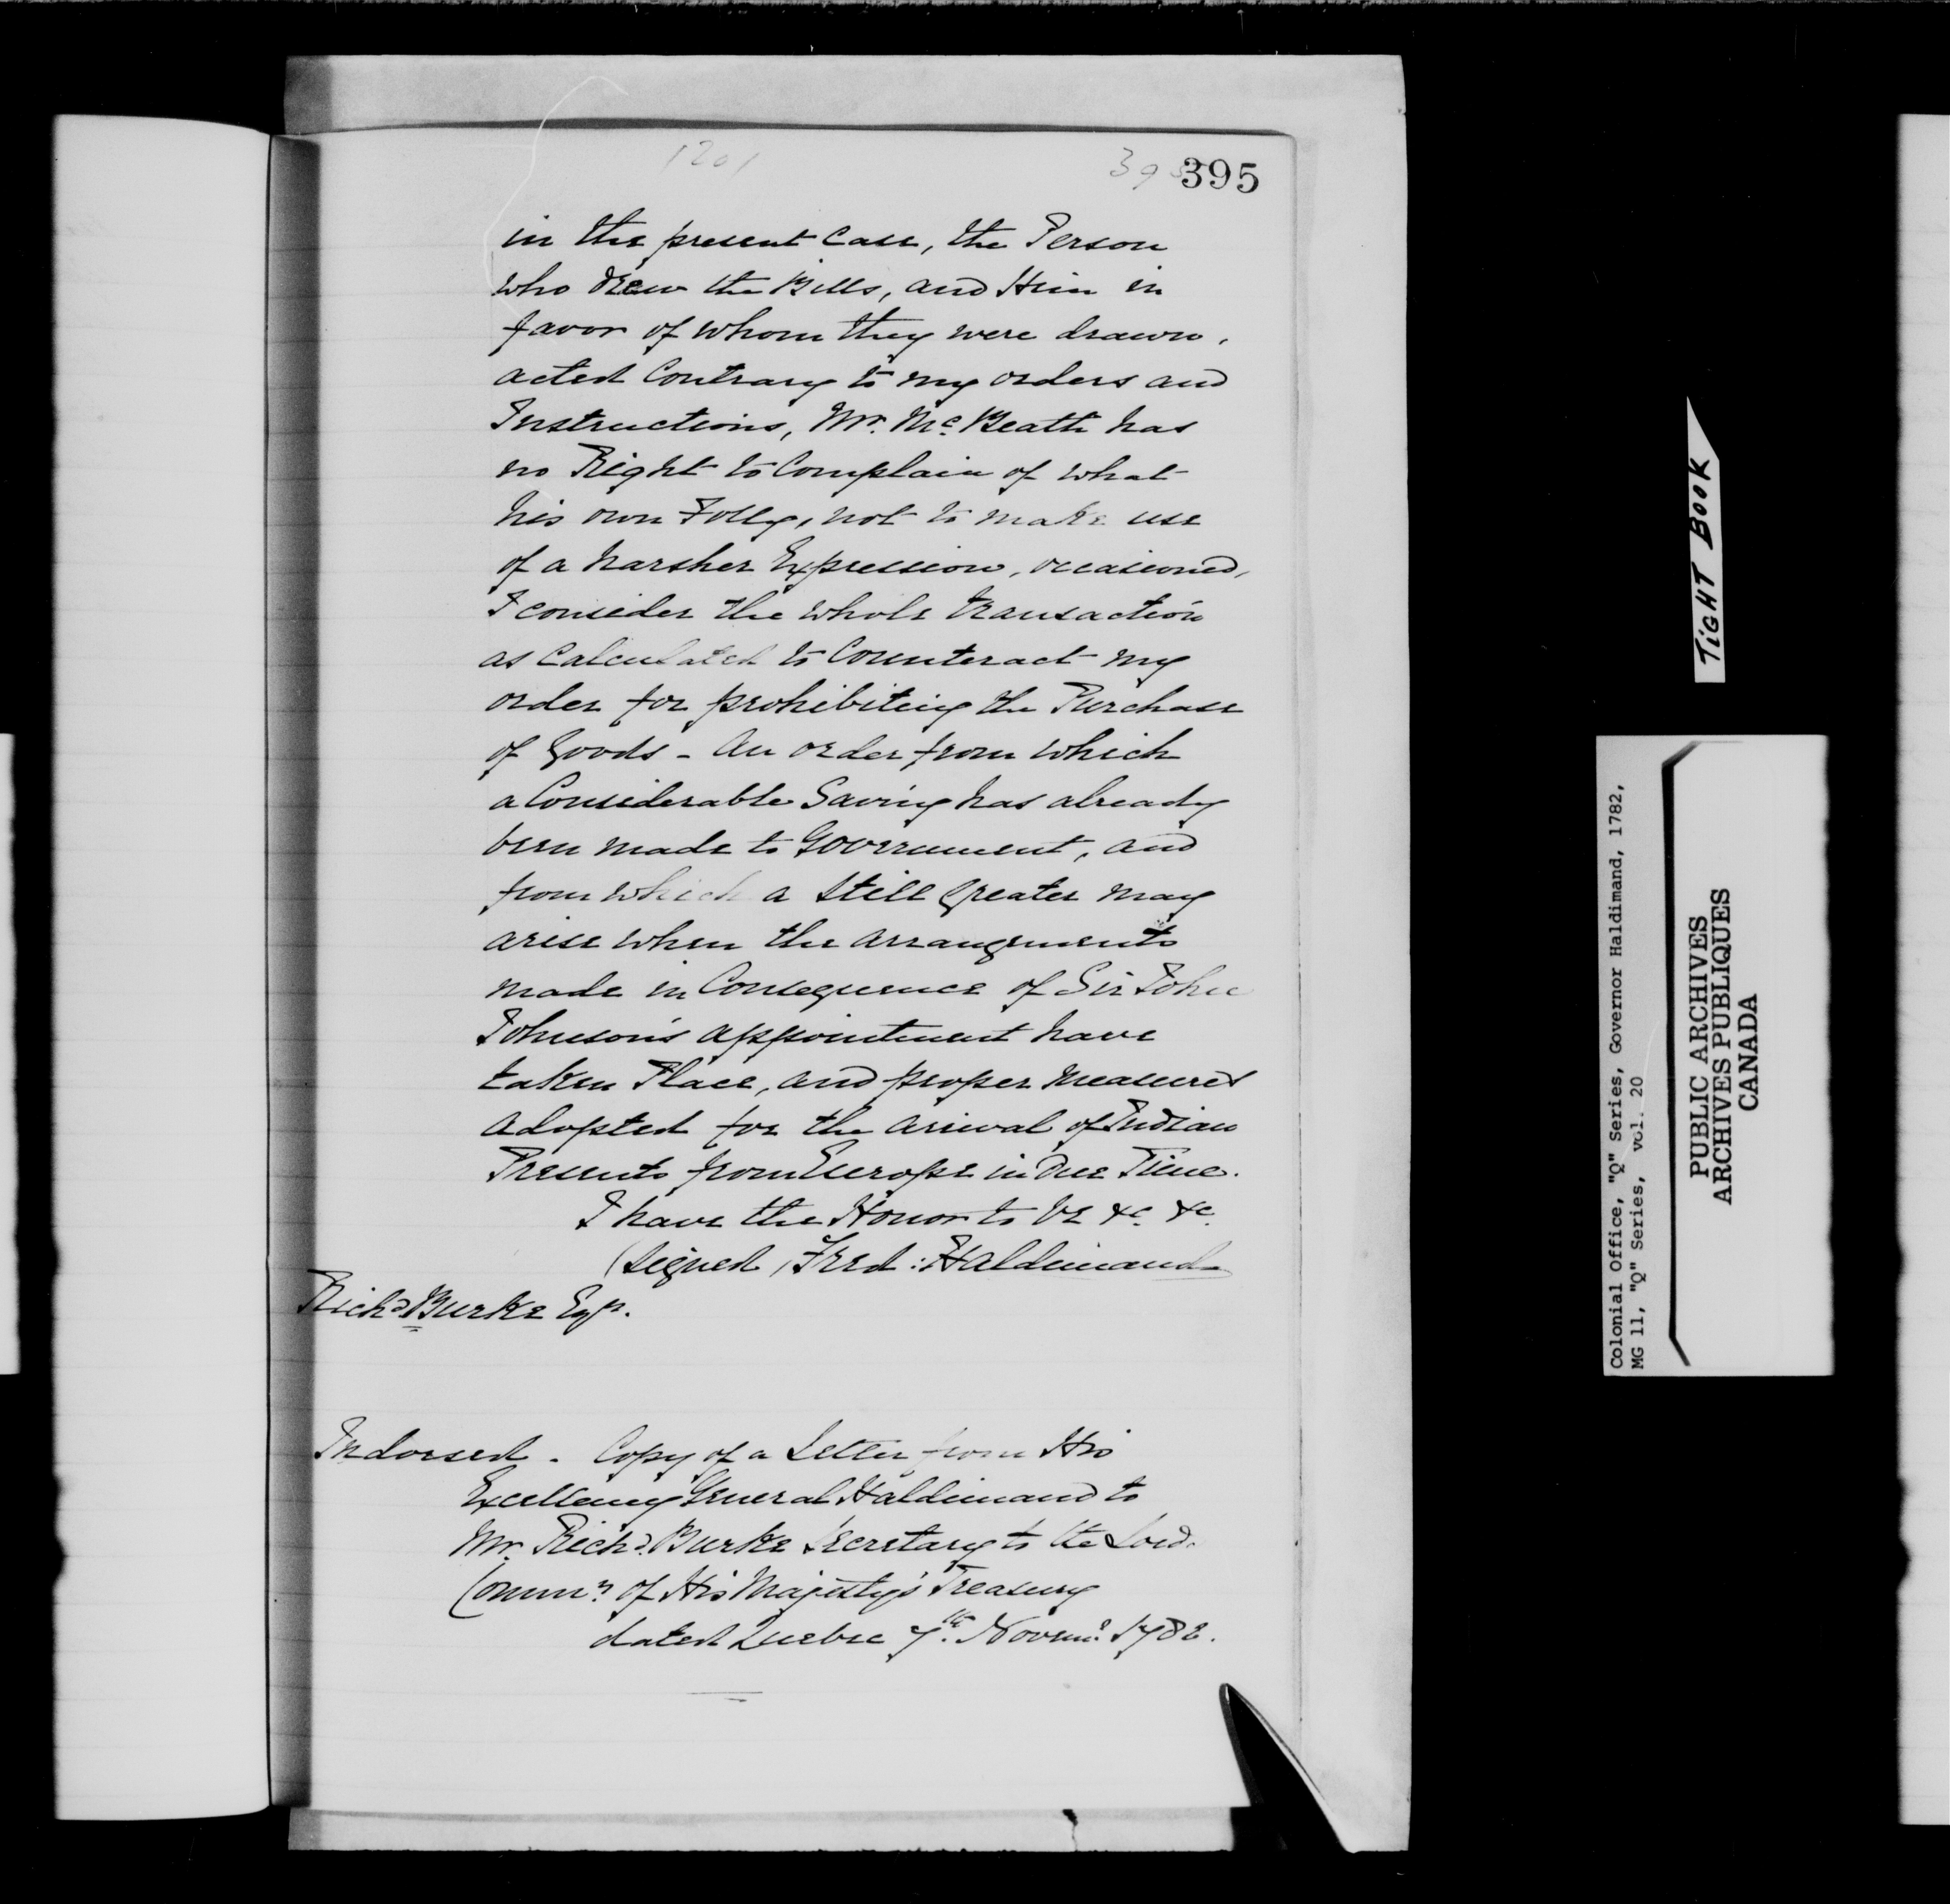 1201
395 395
in the present case, the Person
who drew the Bills, and Him in
favor of whom they were drawn,
acted Contrary to my orders and
Instructions, Mr. Mc.Beath has
no Right to Complain of what
his own Folly, not to make use
of a harsher Expression, occasioned,
I consider the whole transaction
as calculated to Counteract my
order for prohibiting the Purchase
of Goods - An order from which
a Considerable Saving has already
been made to Government, and
from which a still Greater may
arise when the arrangements
made in Consequence of Sir John
Johnson's appointment have
taken Place, and proper measures
adopted for the arival of Indian
Presents from Europe in Due Time.
I have the Honor to be &c. &c.
(signed) Fred: Haldimand
Richd. Burke Esqr.
Indorsed. Copy of a Letter from His
Excellency General Haldimand to
Mr. Richd. Burke Secretary to the Lords
Commrs. of His Majesty's Treasury
dated Quebec 7th. Novemr. 1782.
TiGHT BOOK
Colonial Office, "Q" Series, Governor Haldimand, 1782,
MG 11, "Q" Series, vol. 20
PUBLIC ARCHIVES
ARCHIVES PUBLIQUES
CANADA